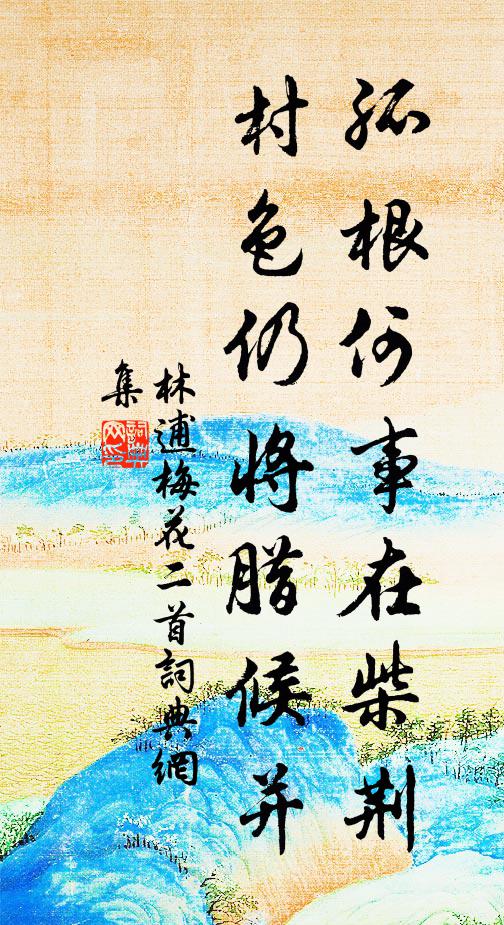 孤根何事在柴荆
村色仍将腊候并
林逋梅花二首詞典網
集